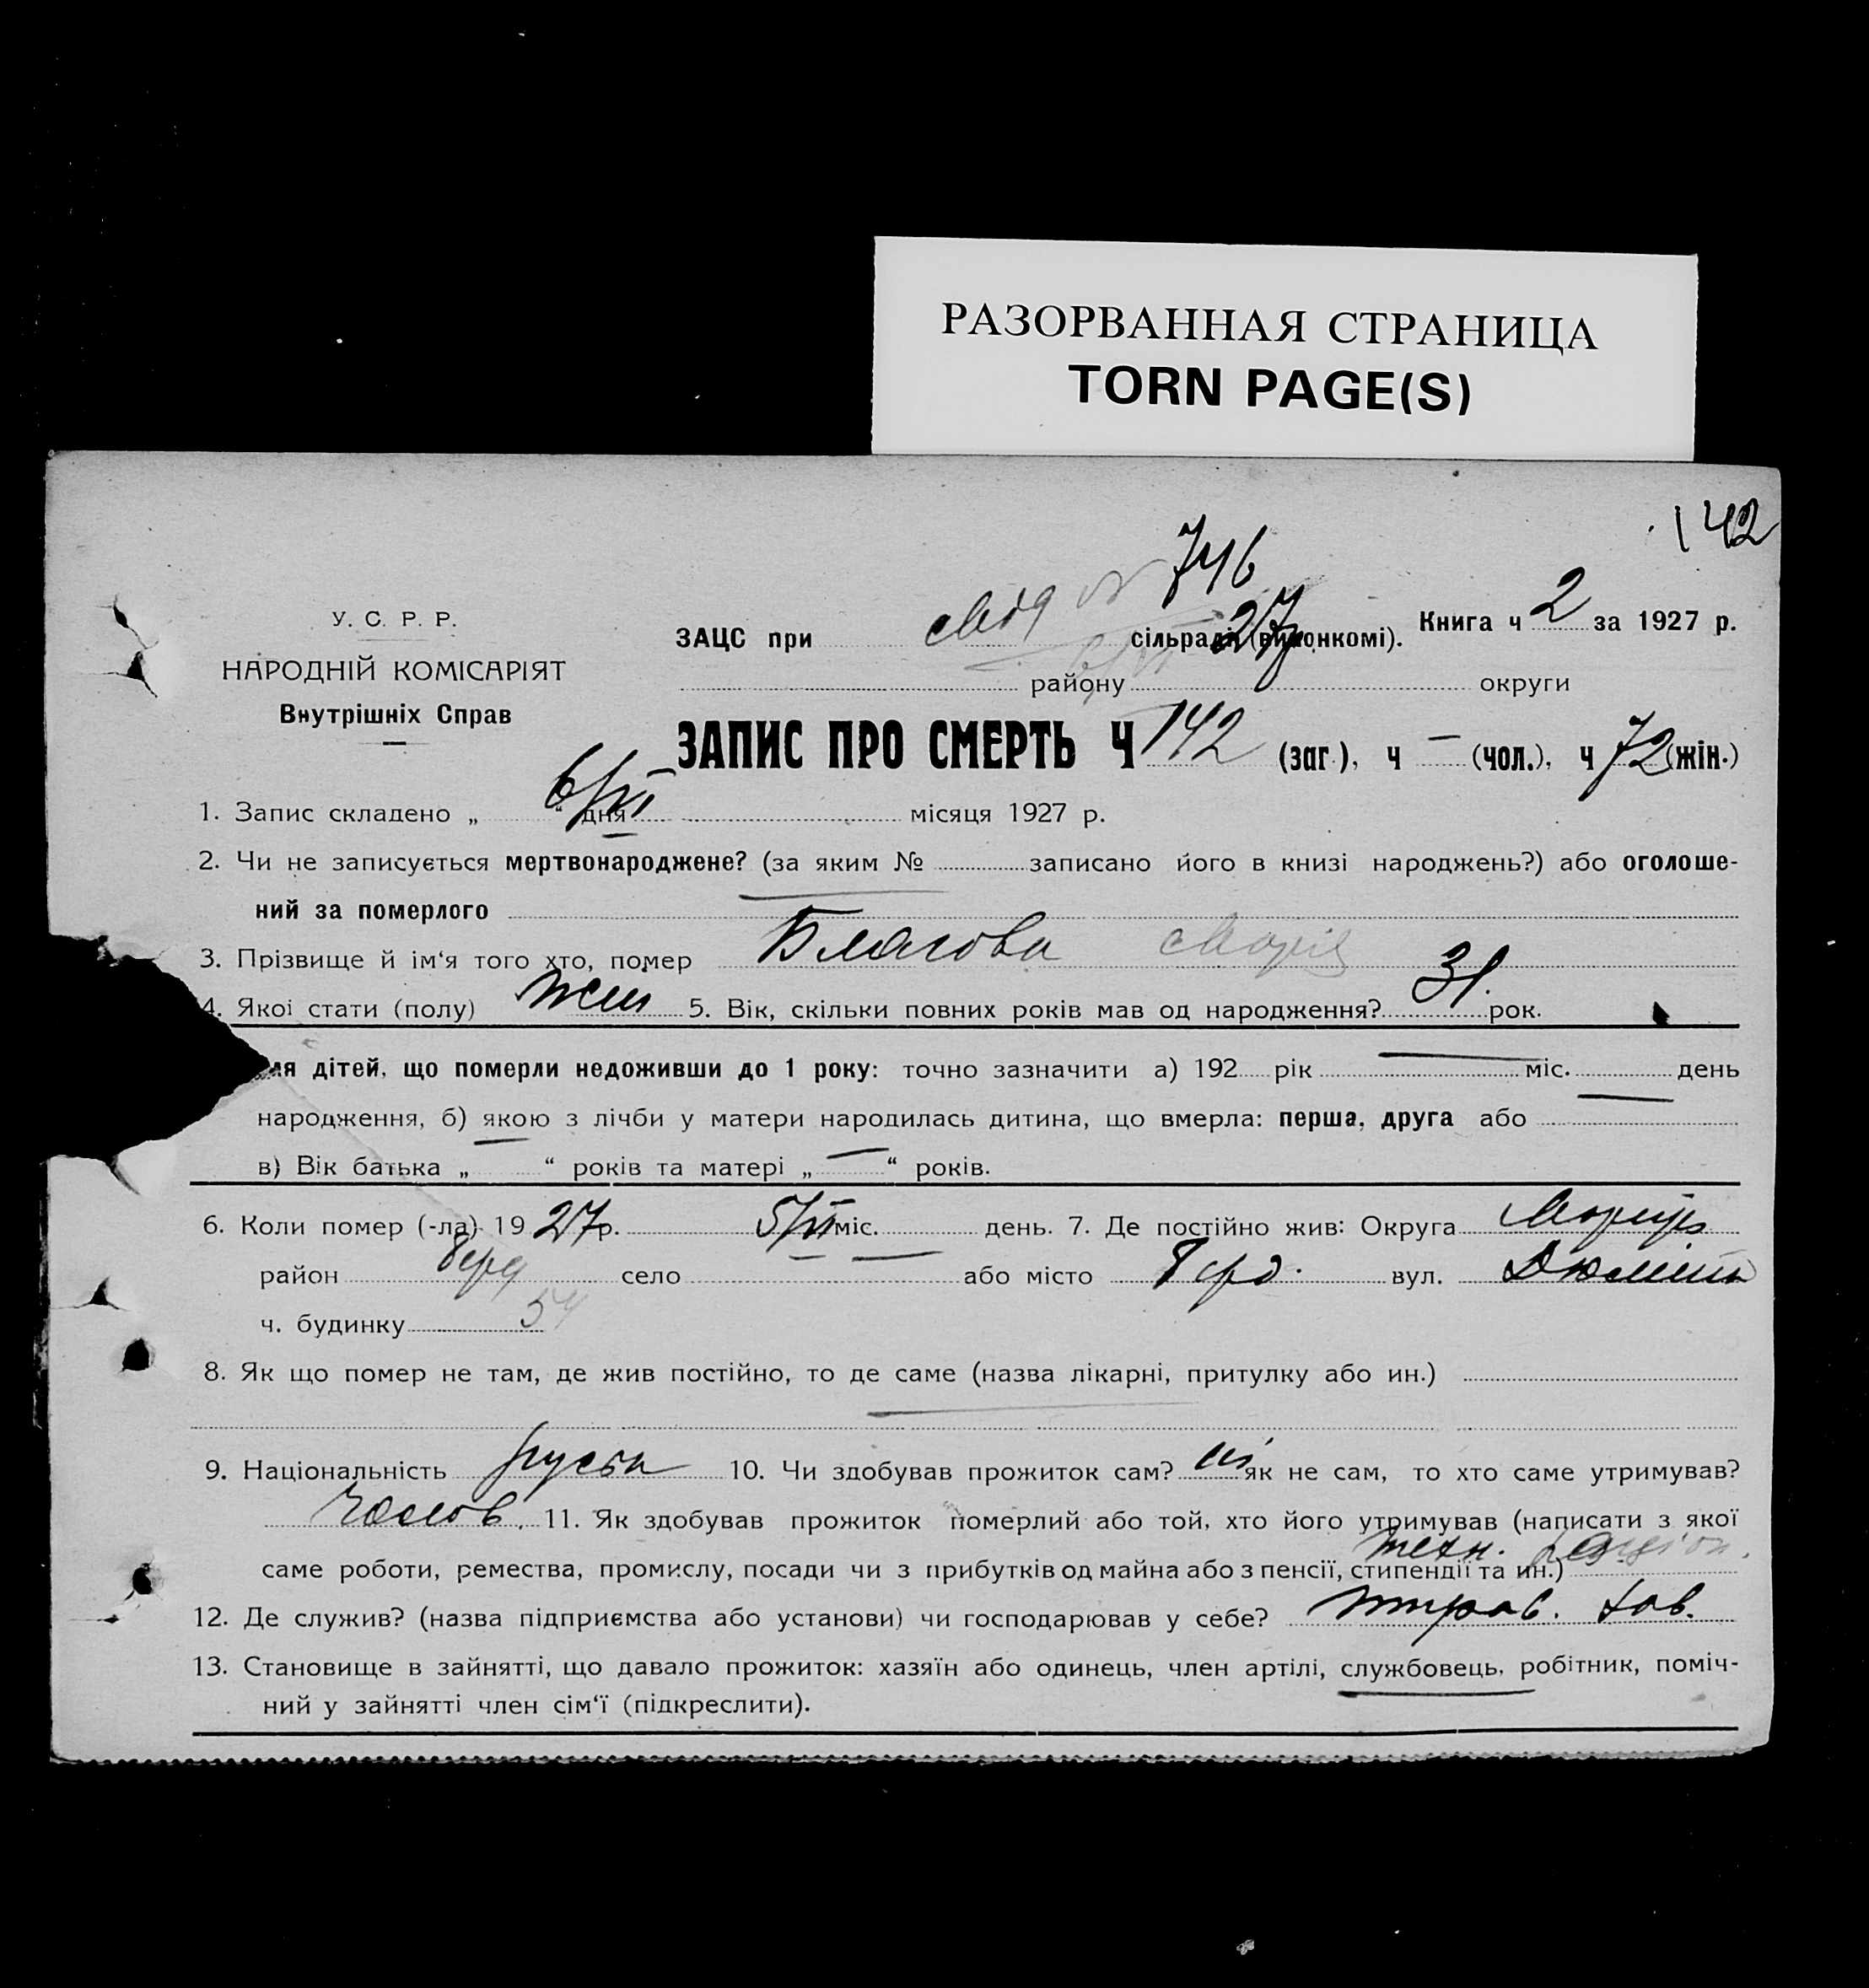 РАЗОРВАННАЯ СТРАНИЦА
TORN PAGE(S)
142
746
У. С. Р. Р.
НАРОДНІЙ КОМІСАРІЯТ
Внутрішніх Справ
ЗАЦС при сільради (виконкомі). 27 Книга ч 2 за 1927 р.
району округи
ЗАПИС ПРО СМЕРТЬ Ч 142 (заг.), ч — (чол.), ч 72 (жін.)
1. Запис складено „ 6/VI “ дня місяця 1927 р.
2. Чи не записується мертвонароджене? (за яким № записано його в книзі народжень?) або оголоше-
ний за померлого —
3. Прізвище й ім‘я того хто, помер Благова Марія
4. Якої стати (полу) жін 5. Вік, скільки повних років мав од народження? 31 рок.
ля дітей, що померли недоживши до 1 року: точно зазначити а) 192 рік — міс. — день
народження, б) якою з лічби у матери народилась дитина, що вмерла: перша, друга або
в) Вік батька „ — “ років та матері „ — “ років.
6. Коли помер (-ла) 19 27 р. 5/VI міс. — день. 7. Де постійно жив: Округа Маріуп
район Берд село — або місто Берд. вул.
ч. будинку 54
8. Як що помер не там, де жив постійно, то де саме (назва лікарні, притулку або ин.) —
9. Національність руська 10. Чи здобував прожиток сам? ні як не сам, то хто саме утримував?
чолов. 11. Як здобував прожиток померлий або той, хто його утримував (написати з якої
саме роботи, ремества, промислу, посади чи з прибутків од майна або з пенсії, стипендії та ин.) техн.
12. Де служив? (назва підприємства або установи) чи господарював у себе?
13. Становище в зайнятті, що давало прожиток: хазяїн або одинець, член артілі, службовець, робітник, поміч-
ний у зайнятті член сім‘ї (підкреслити).